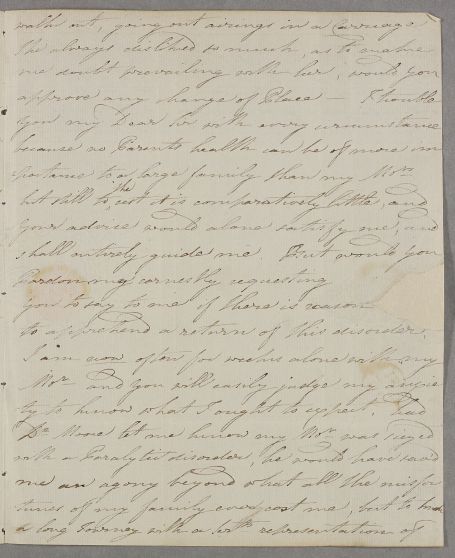 walk out, going out airings in a Carriage
She always disliked so much, as to make
me doubt prevailing with her; would you
approve any change of Place — I trouble
you my Dear Sir with every circumstance
because no Parents health can be of more im
portance to a large family than my Mors
but still to the rest it is comparatively little, and
your advice would alone satisfy me, and
shall entirely guide me. But would you
Pardon my earnestly requesting
you to say to me if there is reason
to apprehend a return of this disorder.
I am now often for weeks alone with my
Mor and you will easily judge my anxie
ty to know what I ought to expect. Had
Dr Moore let me know my Mor was siezed
with a Paralytic disorder, he would have saved
me an agony beyond what all the misfor
tunes of my family ever cost me, but to
a long Journey with a representation of